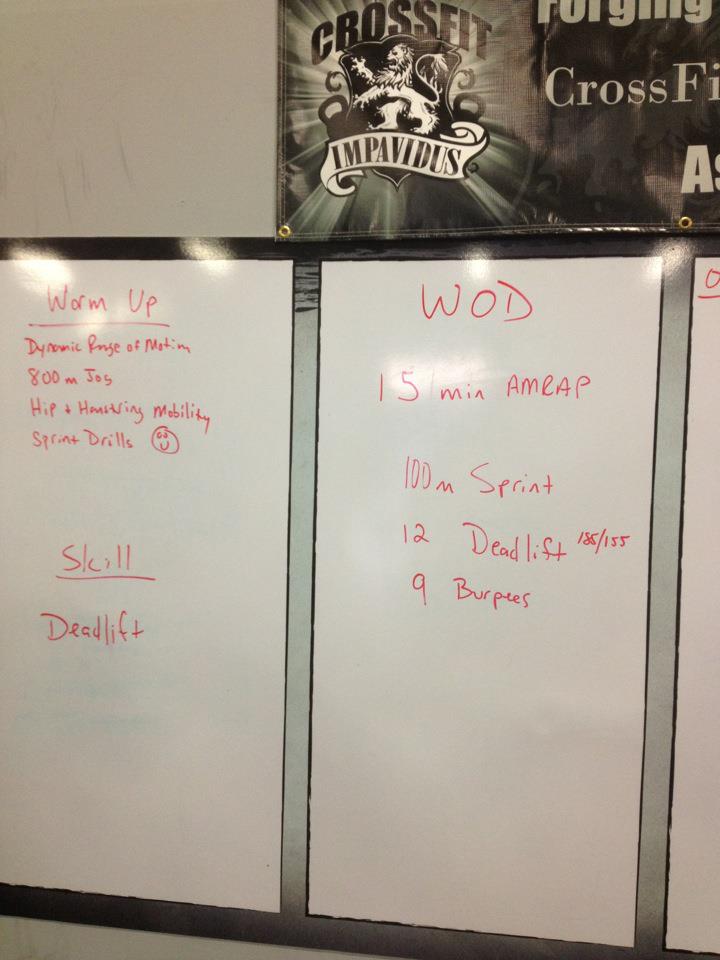 CROSSFIT
IMPAVIDUS
Forging
CrossFi
As
Warm Up
Dynamic Range of Motion
800m Jog
Hip + Hamstring Mobility
Sprint Drills
Skill
Deadlift
WOD
15 min AMRAP
100m Sprint
12 Deadlift 185/155
9 Burpees